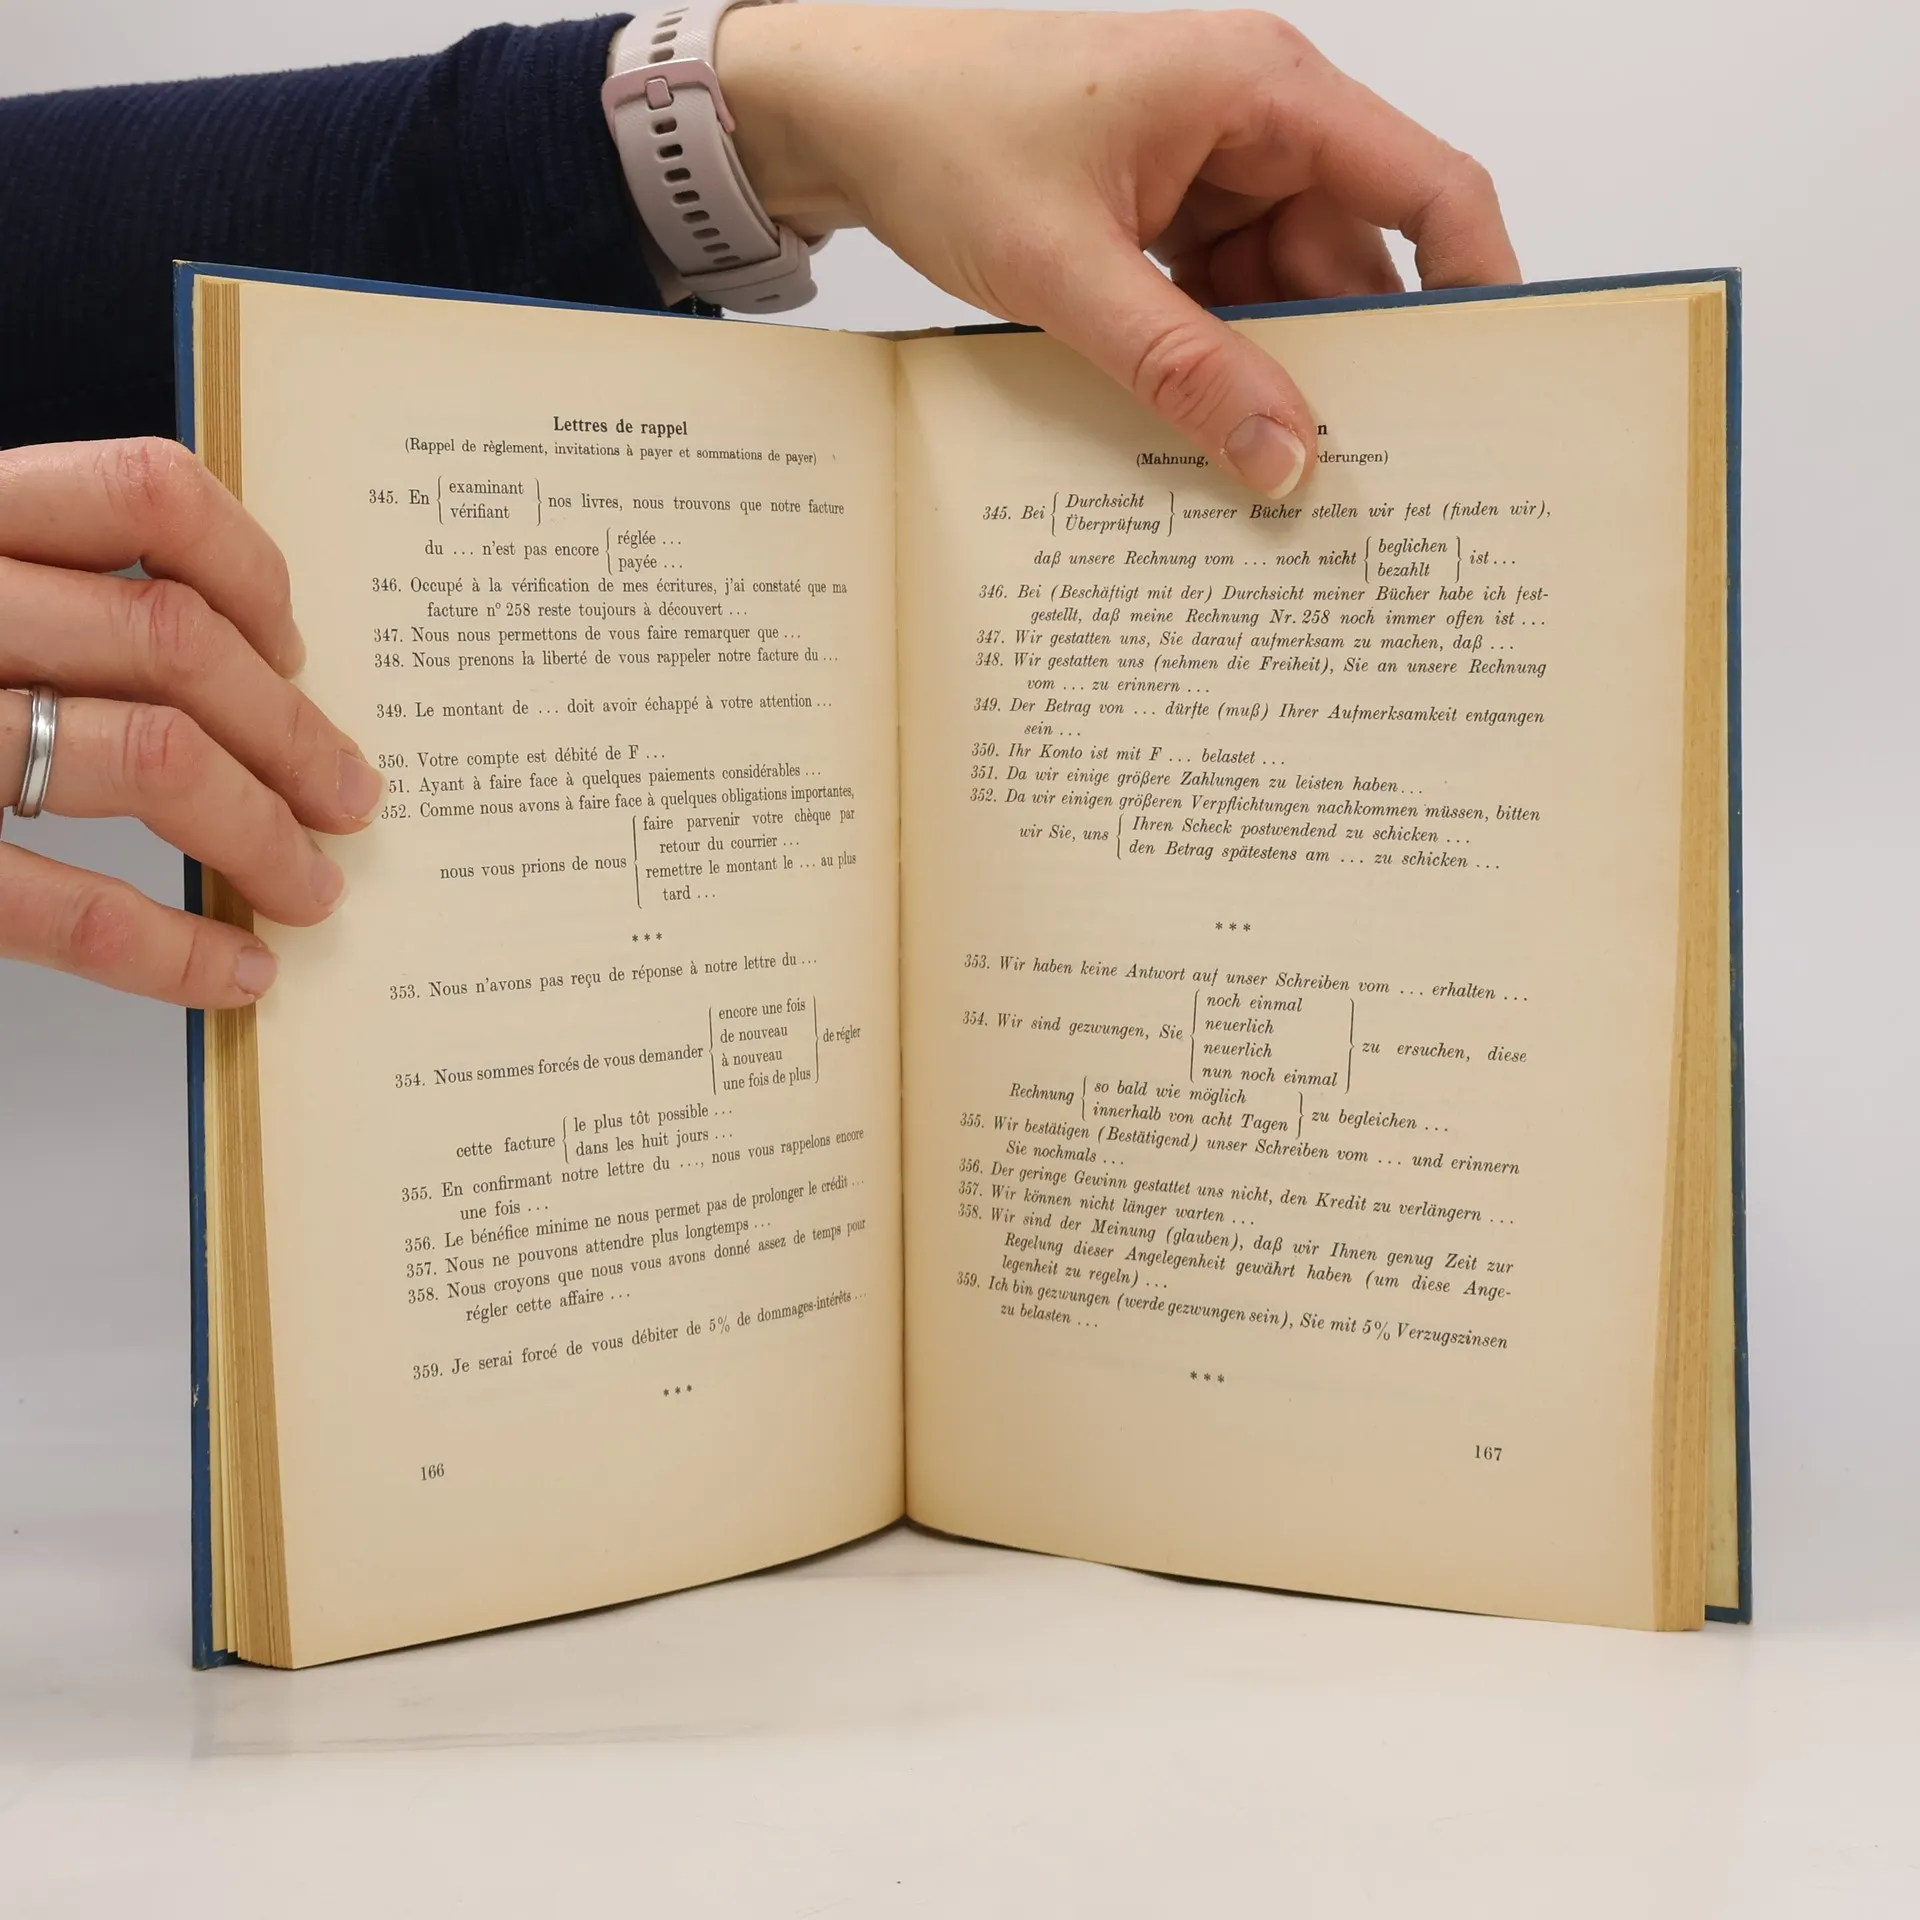 Lettres de rappel
(Rappel de règlement, invitations à payer et sommations de payer)
345. En { examinant / vérifiant } nos livres, nous trouvons que notre facture
du ... n'est pas encore { réglée ... / payée ...
346. Occupé à la vérification de mes écritures, j'ai constaté que ma
facture n° 258 reste toujours à découvert ...
347. Nous nous permettons de vous faire remarquer que ...
348. Nous prenons la liberté de vous rappeler notre facture du ...
349. Le montant de ... doit avoir échappé à votre attention ...
350. Votre compte est débité de F ...
51. Ayant à faire face à quelques paiements considérables ...
352. Comme nous avons à faire face à quelques obligations importantes,
nous vous prions de nous { faire parvenir votre chèque par
retour du courrier ...
remettre le montant le ... au plus
tard ...
***
353. Nous n'avons pas reçu de réponse à notre lettre du ...
354. Nous sommes forcés de vous demander { encore une fois / de nouveau / à nouveau / une fois de plus } de régler
cette facture { le plus tôt possible ... / dans les huit jours ...
355. En confirmant notre lettre du ..., nous vous rappelons encore
une fois ...
356. Le bénéfice minime ne nous permet pas de prolonger le crédit ...
357. Nous ne pouvons attendre plus longtemps ...
358. Nous croyons que nous vous avons donné assez de temps pour
régler cette affaire ...
359. Je serai forcé de vous débiter de 5% de dommages-intérêts ...
***
166
n
(Mahnung, derungen)
345. Bei { Durchsicht / Überprüfung } unserer Bücher stellen wir fest (finden wir),
daß unsere Rechnung vom ... noch nicht { beglichen / bezahlt } ist ...
346. Bei (Beschäftigt mit der) Durchsicht meiner Bücher habe ich fest-
gestellt, daß meine Rechnung Nr. 258 noch immer offen ist ...
347. Wir gestatten uns, Sie darauf aufmerksam zu machen, daß ...
348. Wir gestatten uns (nehmen die Freiheit), Sie an unsere Rechnung
vom ... zu erinnern ...
349. Der Betrag von ... dürfte (muß) Ihrer Aufmerksamkeit entgangen
sein ...
350. Ihr Konto ist mit F ... belastet ...
351. Da wir einige größere Zahlungen zu leisten haben...
352. Da wir einigen größeren Verpflichtungen nachkommen müssen, bitten
wir Sie, uns { Ihren Scheck postwendend zu schicken ...
den Betrag spätestens am ... zu schicken ...
***
353. Wir haben keine Antwort auf unser Schreiben vom ... erhalten ...
354. Wir sind gezwungen, Sie { noch einmal / neuerlich / neuerlich / nun noch einmal } zu ersuchen, diese
Rechnung { so bald wie möglich / innerhalb von acht Tagen } zu begleichen ...
355. Wir bestätigen (Bestätigend) unser Schreiben vom ... und erinnern
Sie nochmals ...
356. Der geringe Gewinn gestattet uns nicht, den Kredit zu verlängern ...
357. Wir können nicht länger warten ...
358. Wir sind der Meinung (glauben), daß wir Ihnen genug Zeit zur
Regelung dieser Angelegenheit gewährt haben (um diese Ange-
legenheit zu regeln) ...
359. Ich bin gezwungen (werde gezwungen sein), Sie mit 5% Verzugszinsen
zu belasten ...
***
167